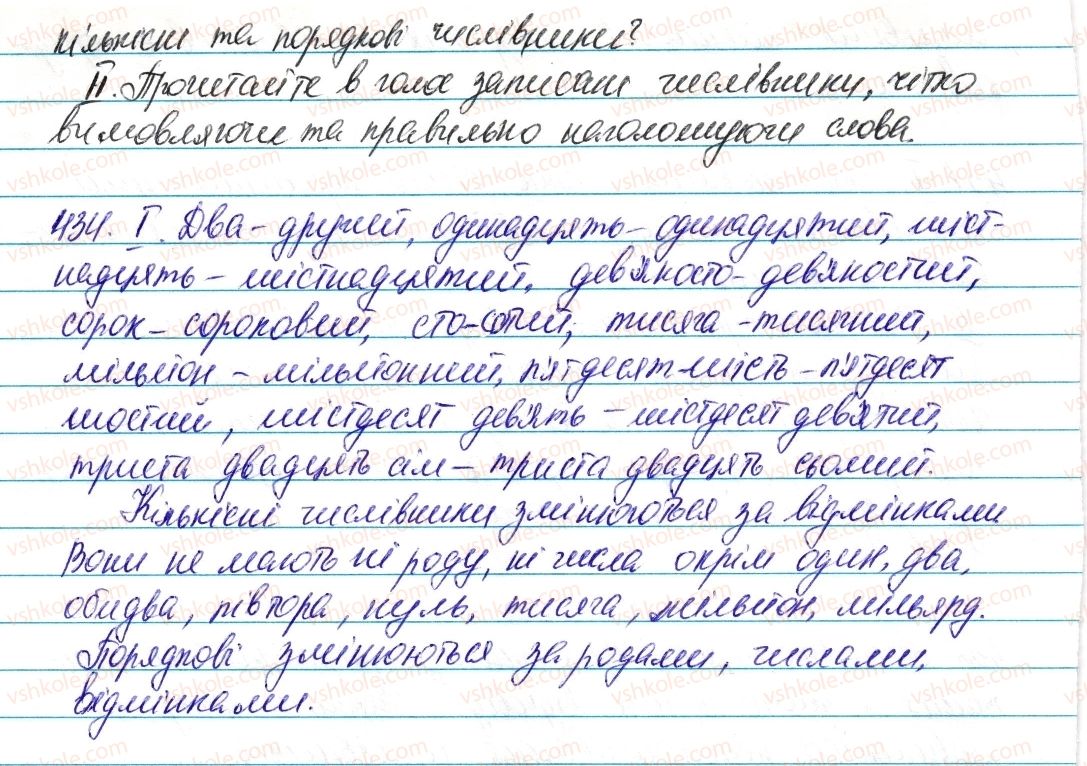 кількісні та порядкові числівники?
II. Прочитайте в голос записані числівники, чітко
вимовляючи та правильно наголошуючи слова.
434. I. Два - другий, одинадцять - одинадцятий, шіст-
надцять - шістнадцятий, дев'яносто - дев'яностий,
сорок - сороковий, сто - сотий, тисяча - тисячний,
мільйон - мільйонний, п'ятдесят шість - п'ятдесят
шостий, шістдесят дев'ять - шістдесят дев'ятий,
триста двадцять сім - триста двадцять сьомий.
Кількісні числівники змінюються за відмінками
Вони не мають ні роду, ні числа окрім один, два,
обидва, півтора, нуль, тисяча, мільйон, мільярд.
Порядкові змінюються за родами, числами,
відмінками.